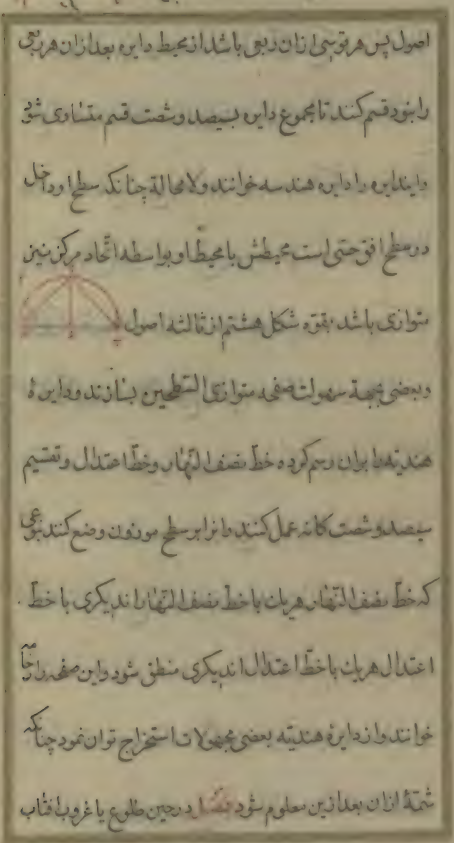 اصول پس هر قوسی ازان ربعی باشد از محیط دایره بعد ازان هر ربعی
را بنود قسم کنند تا مجموع دایره بسیصد و شصت قسم متساوی شود
و ایندایره را دایره هندسه خوانند ولا محالة چنانکه سطح او داخل
در سطح افق حتی است محیطش با محیط او بواسطه اتحاد مرکز نیز
متوازی باشد بقوه شکل هشتم از ثالثه اصول
و بعضی بجهة سهولت صفحه متوازی السطحین بسازند و دایرهٔ
هندیه را بران رسم کرده خط نصف النهار و خط اعتدال و تقسیم
سیصد و شصت کانه عمل کنند و انرا بر سطح موزون وضع کنند بنوعی
که خط نصف النهار هریك با خط نصف النهار اندیکری با خط
اعتدال هریك با خط اعتدال اندیکری منطق شود و این صفحه را
خوانند و از دایرهٔ هندیه بعضی مجهولات استخراج توان نمود چنانکه
شمهٔ ازان بعد ازین معلوم شود فصل در حین طلوع یا غروب افتاب